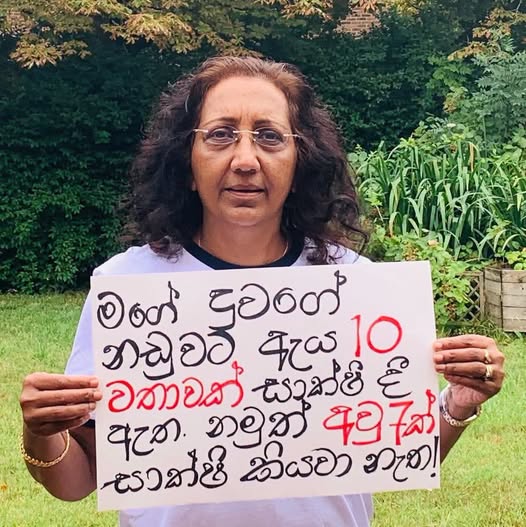 මගේ දුවගේ
නඩුවට ඇය 10
වතාවක් සාක්ෂි දී
ඇත. නමුත් අවු 7ක්
සාක්ෂි කියවා නැත!